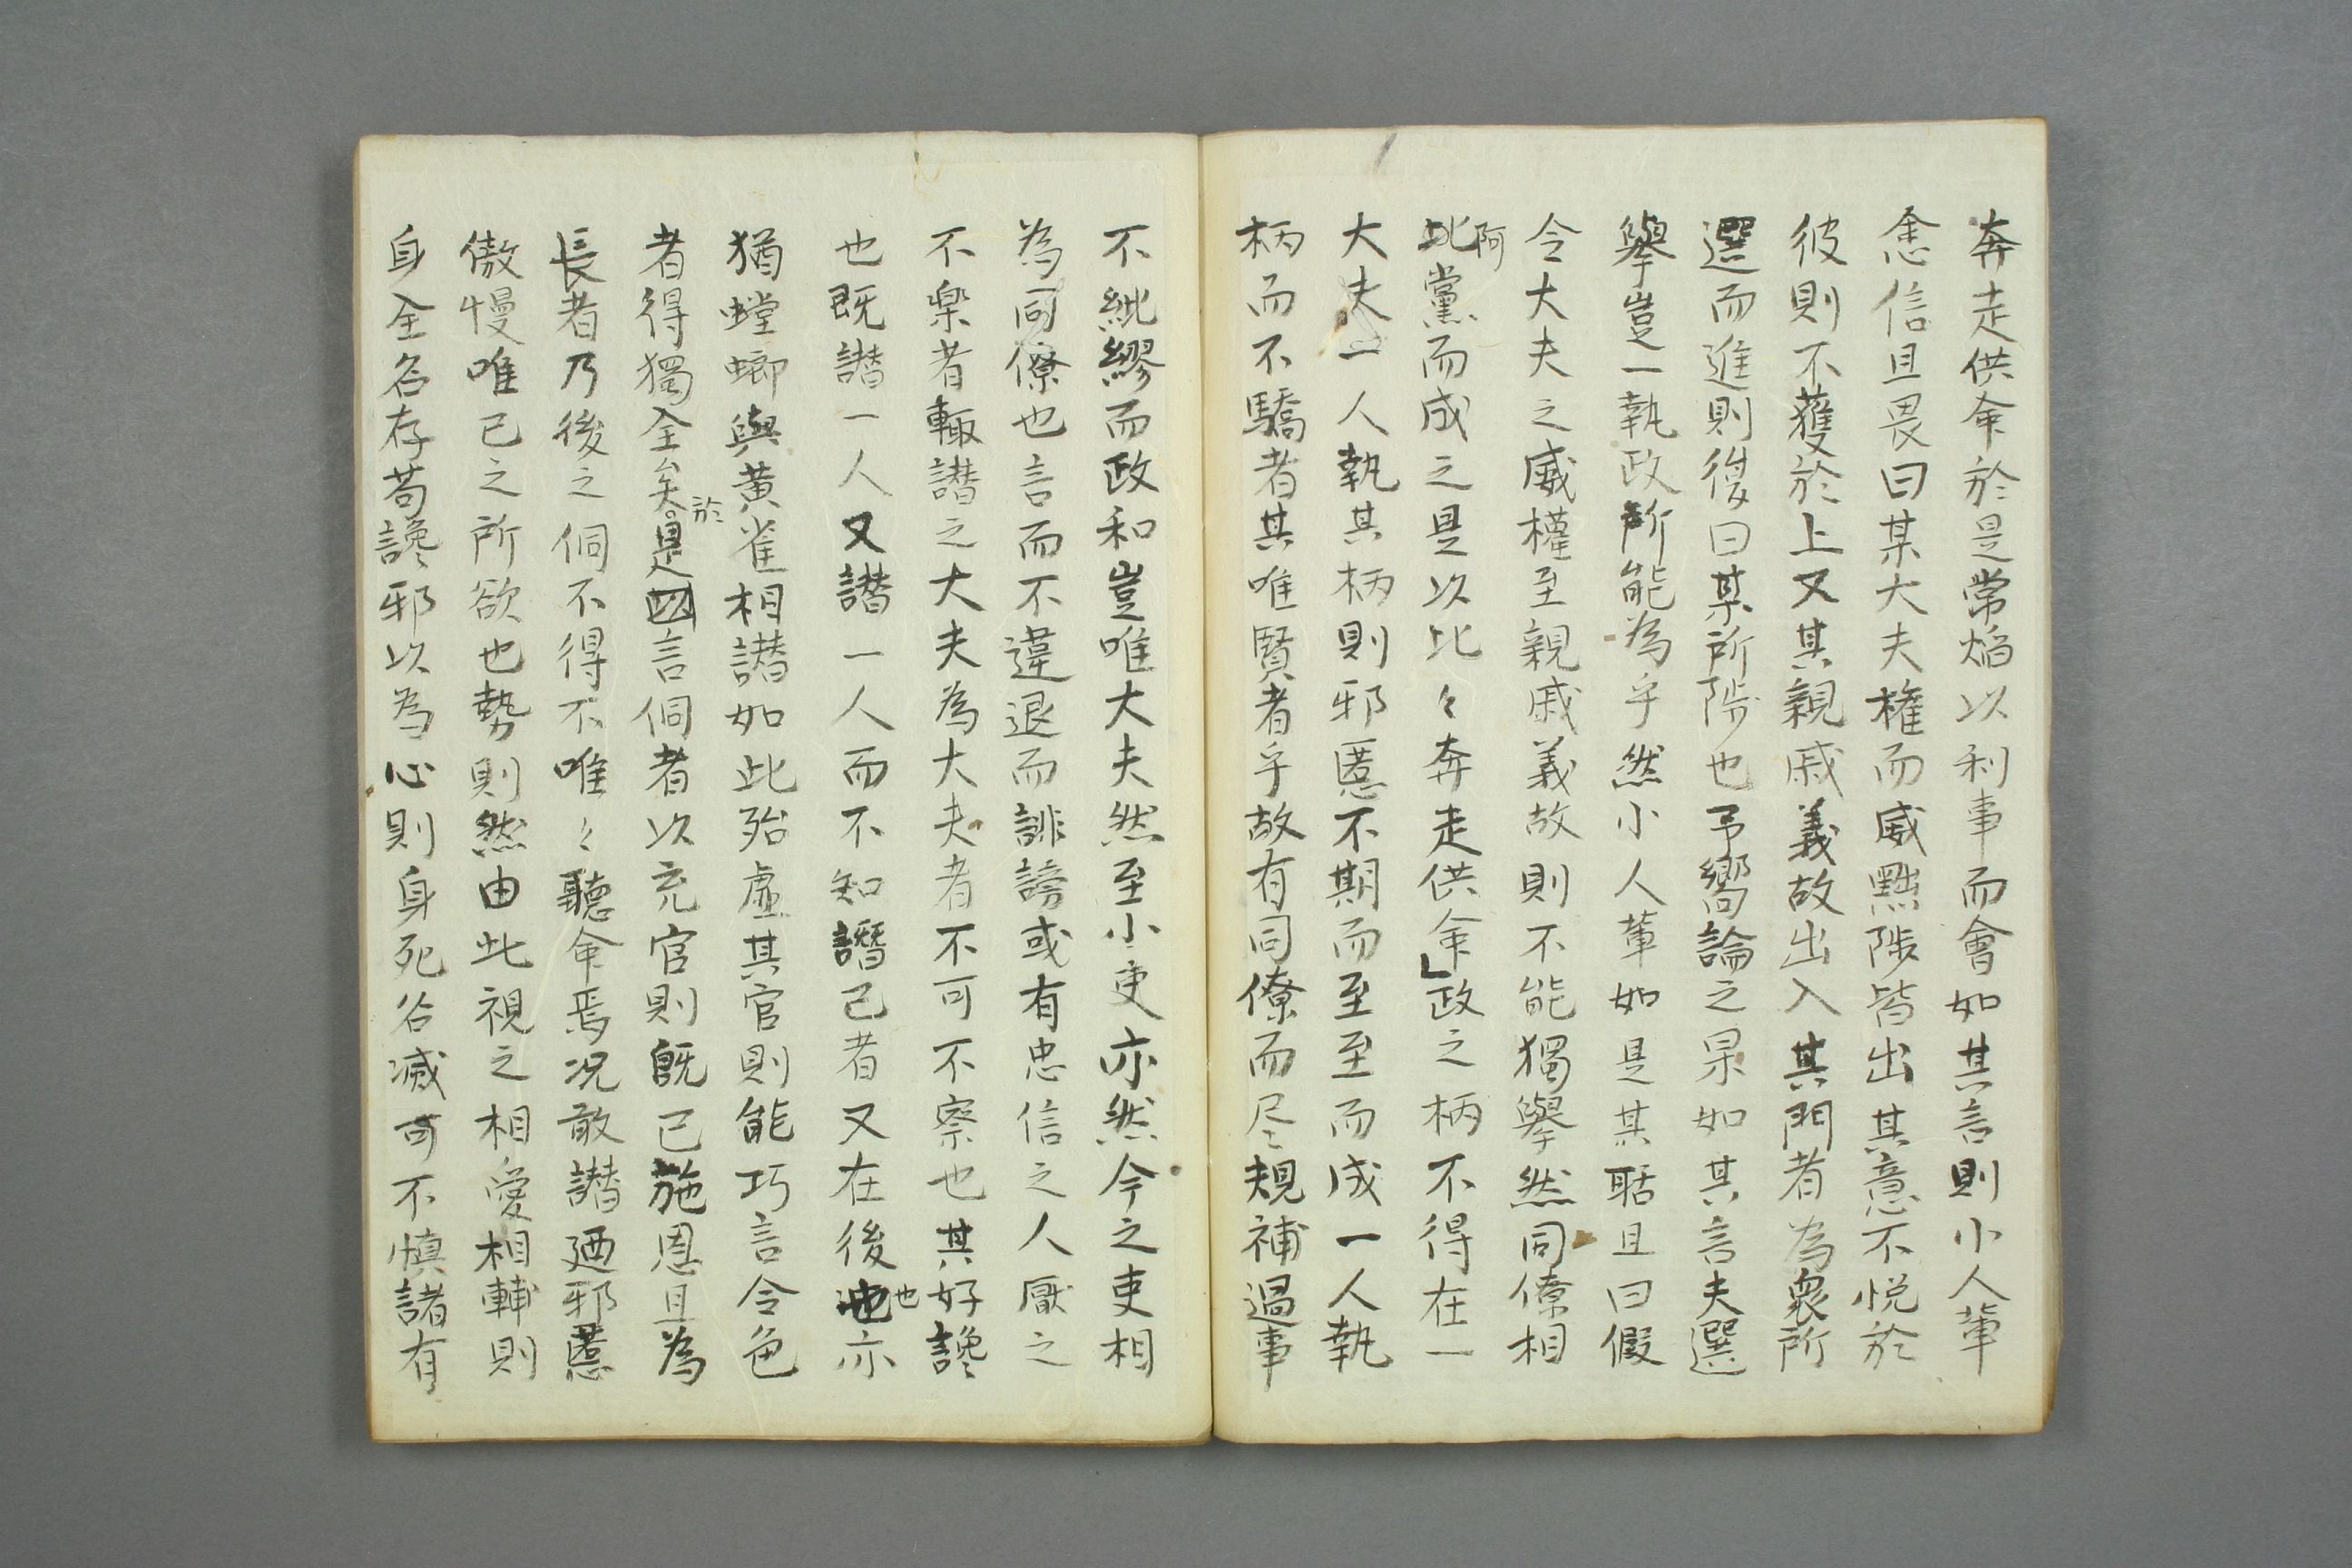 奔走供命於是常焔以利事而會如其言則小人輩
悆信且畏曰某大夫権而威黜陟皆出其意不悦於
彼則不獲於上又其親戚義故出入其門者為衆所
選而進則復曰某所陟也予嚮論之果如其言夫選
擧豈一執政所能為乎然小人輩如是其聒且曰假
令大夫之威權至親戚義故則不能獨擧然同僚相
阿黨而成之是以比々奔走供命」政之柄不得在一
大夫一人執其柄則邪慝不期而至至而成一人執
柄而不驕者其唯賢者乎故有同僚而尽規補過事
不紕繆而政和豈唯大夫然至小吏亦然今之吏相
為同僚也言而不違退而誹謗或有忠信之人厭之
不楽者輙譖之大夫為大夫者不可不察也其好讒
也既譖一人又譖一人而不知譖己者又在後也亦
猶螳螂與黄雀相譖如此殆虚其官則能巧言令色
者得獨全矣於是言侗者以充官則既已施恩且為
長者乃後之侗不得不唯々聽命焉况敢譖廼邪慝
傲慢唯己之所欲也勢則然由此視之相愛相輔則
身全名存苟讒邪以為心則身死谷滅可不慎諸有